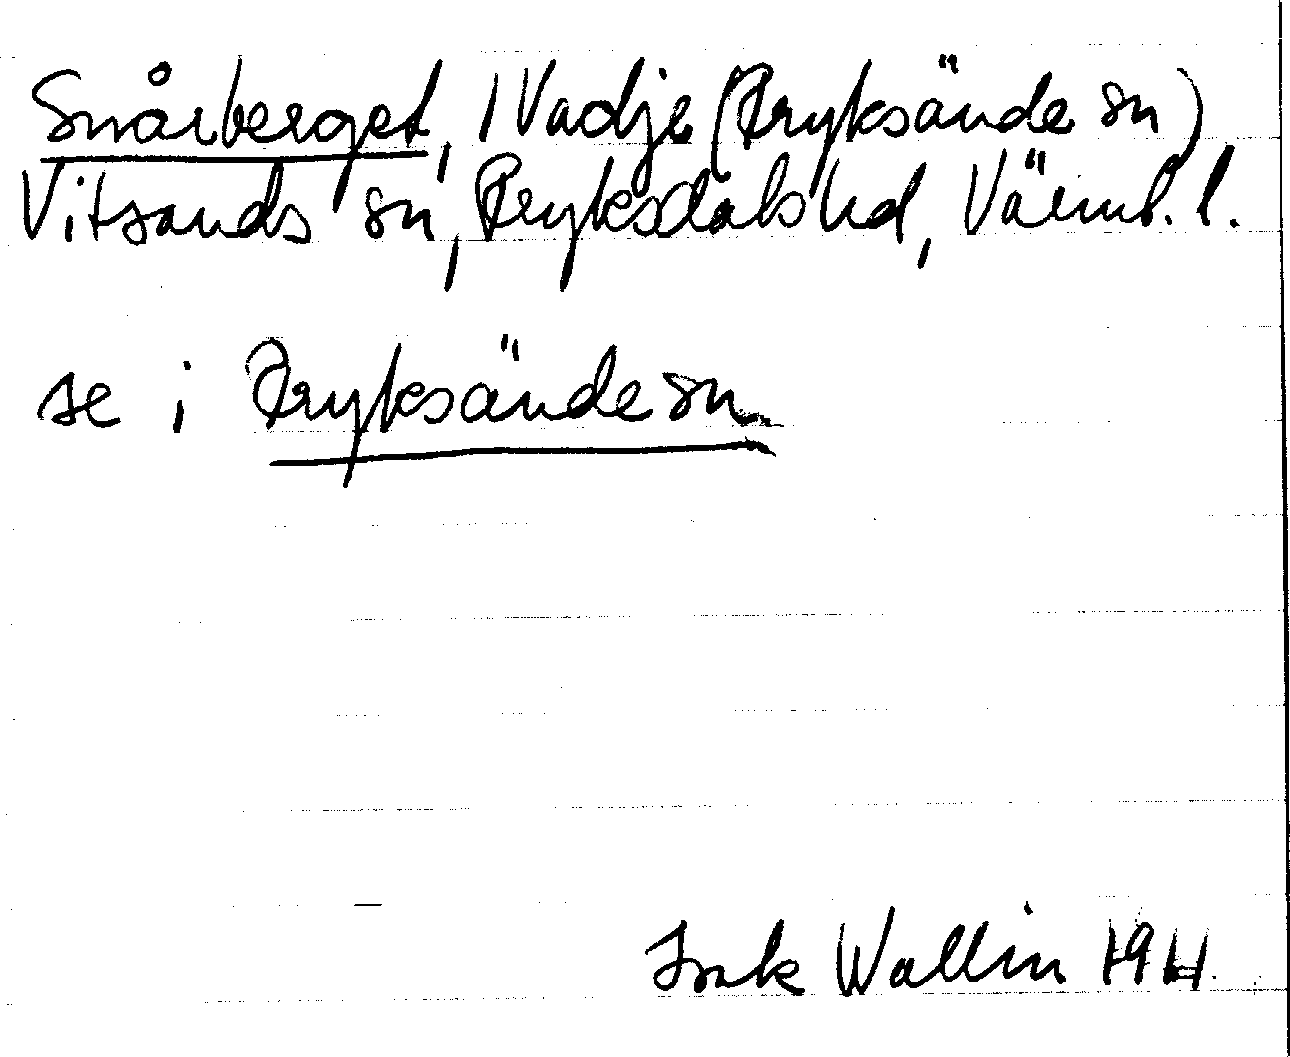 Snårberget, / Vadje (Fryksände sn)
Vitsands sn, Fryksdals hd, Värml. l.
se i Fryksände sn
Isak Wallin